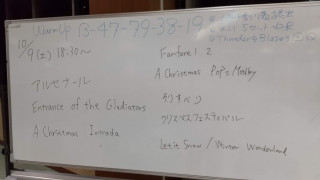 WarmUp B-47-79-38-19
10/9(土) 18:30〜
Fanfare 1. 2
アルセナール
A Christmas Pops Medley
Entrance of the Gladiators
クリスマスフェスティバル
A Christmas
Let it Snow / Winter Wonderland